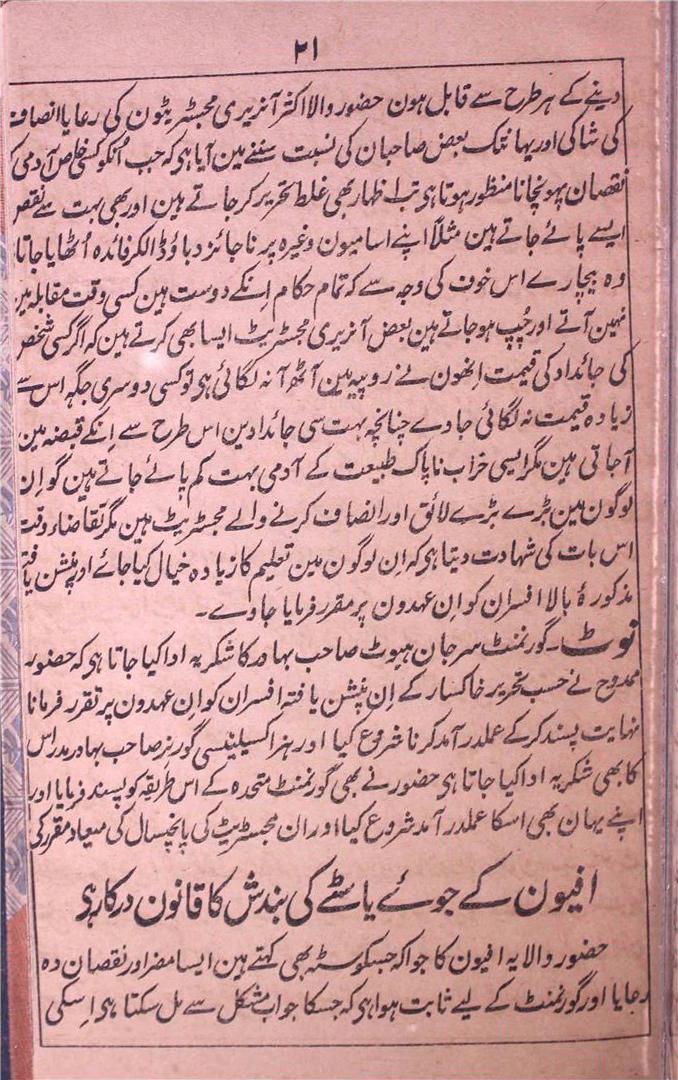 ۲۱
دینے کے ہر طرح سے قابل ہون حضور والا اکثر آنریری مجسٹریٹون کی رعایا انصاف
کی شاکی اور یہانتک بعض صاحبان کی نسبت سننے مین آیا ہی کہ جب انکو کسی خاص آدمی کا
نقصان پہونچانا منظور ہوتا ہی تب اظہار بھی غلط تحریر کر جاتے ہین اور بھی بہت سے نقص
ایسے پائے جاتے ہین مثلاً اپنے اسامیون وغیرہ پر ناجائز دباؤ ڈالکر فائدہ اُٹھایا جاتا
وہ بیچارے اس خوف کی وجہ سے کہ تمام حکام اِنکے دوست ہین کسی وقت مقابلہ مین
نہین آتے اور چُپ ہو جاتے ہین بعض آنریری مجسٹریٹ ایسا بھی کرتے ہین کہ اگر کسی شخص
کی جائداد کی قیمت اِنھون نے روپیہ مین آٹھ آنہ لگائی ہی تو کسی دوسری جگہ اس سے
زیادہ قیمت نہ لگائی جاوے چنانچہ بہت سی جائدادین اس طرح سے اِنکے قبضہ مین
آجاتی ہین مگر ایسی خراب ناپاک طبیعت کے آدمی بہت کم پائے جاتے ہین گو اِن
لوگون مین بڑے بڑے لائق اور انصاف کرنے والے مجسٹریٹ ہین مگر تقاضاء وقت
اس بات کی شہادت دیتا ہی کہ اِن لوگون مین تعلیم کا زیادہ خیال کیا جائے اور پنشن یافتہ
مذکورۂ بالا افسران کو اِن عہدون پر مقرر فرمایا جاوے۔
نوٹ۔ گورنمنٹ سر جان ہیوٹ صاحب بہادر کا شکریہ ادا کیا جاتا ہی کہ حضور
ممدوح نے حسب تحریر خاکسار کے اِن پنشن یافتہ افسران کو اِن عہدون پر تقرر فرمانا
نہایت پسند کر کے عملدرآمد کرنا شروع کیا اور ہز اکسیلینسی گورنر صاحب بہادر مدراس
کا بھی شکریہ ادا کیا جاتا ہی حضور نے بھی گورنمنٹ متحدہ کے اس طریقہ کو پسند فرمایا اور
اپنے یہان بھی اسکا عملدرآمد شروع کیا اور ان مجسٹریٹ کی پانچسال کی میعاد مقرر کی
افیون کے جوئے یا سٹے کی بندش کا قانون درکار ہی
حضور والا یہ افیون کا جوا کہ جسکو سٹہ بھی کہتے ہین ایسا مضر اور نقصان دہ
رعایا اور گورنمنٹ کے لیے ثابت ہوا ہی کہ جسکا جواب مشکل سے مل سکتا ہی اِسکی